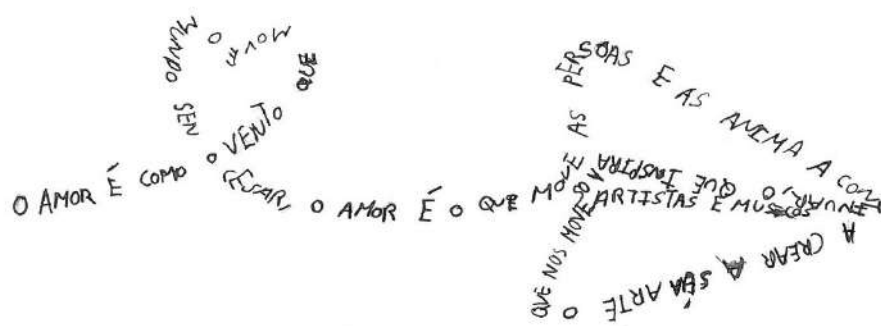 O AMOR É COMO O VENTO QUE MOVE O MUNDO SEN CESAR, O AMOR É O QUE MOVE AS PERSOAS E AS ANIMA A CONTINUAR, O QUE INSPIRA AOS ARTISTAS E MUSICOS A CREAR A SÚA ARTE O QUE NOS MOVE